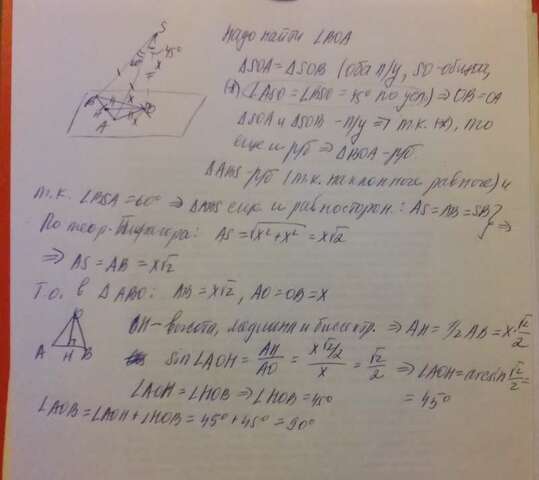 Надо найти ∠BOA
△SOA = △SOB (оба п/у, SO-общий,
∠ASO = ∠BSO = 45° по усл.) ⇒ OB = OA
△SOA и △SOB - п/у ⇒ т.к.
еще и р/б ⇒ △BOA - р/б.
△ABS - р/б (т.к. наклонные равные) и
т.к. ∠BSA = 60° ⇒ △ABS еще и равносторон.: AS = AB = SB} ⇒
По теор. Пифагора: AS = √x² + x² = x√2
⇒ AS = AB = x√2
Т.о. в △ABO: AB = x√2, AO = OB = x
OH - высота, медиана и биссектр. ⇒ AH = 1/2 AB = x·√2/2
sin∠AOH = AH/AO = x√2/2/x = √2/2 ⇒ ∠AOH = arcsin √2/2 =
∠AOH = ∠HOB ⇒ ∠HOB = 45° = 45°
∠AOB = ∠AOH + ∠HOB = 45° + 45° = 90°
S
45°
B
H
A
O
x
A H B